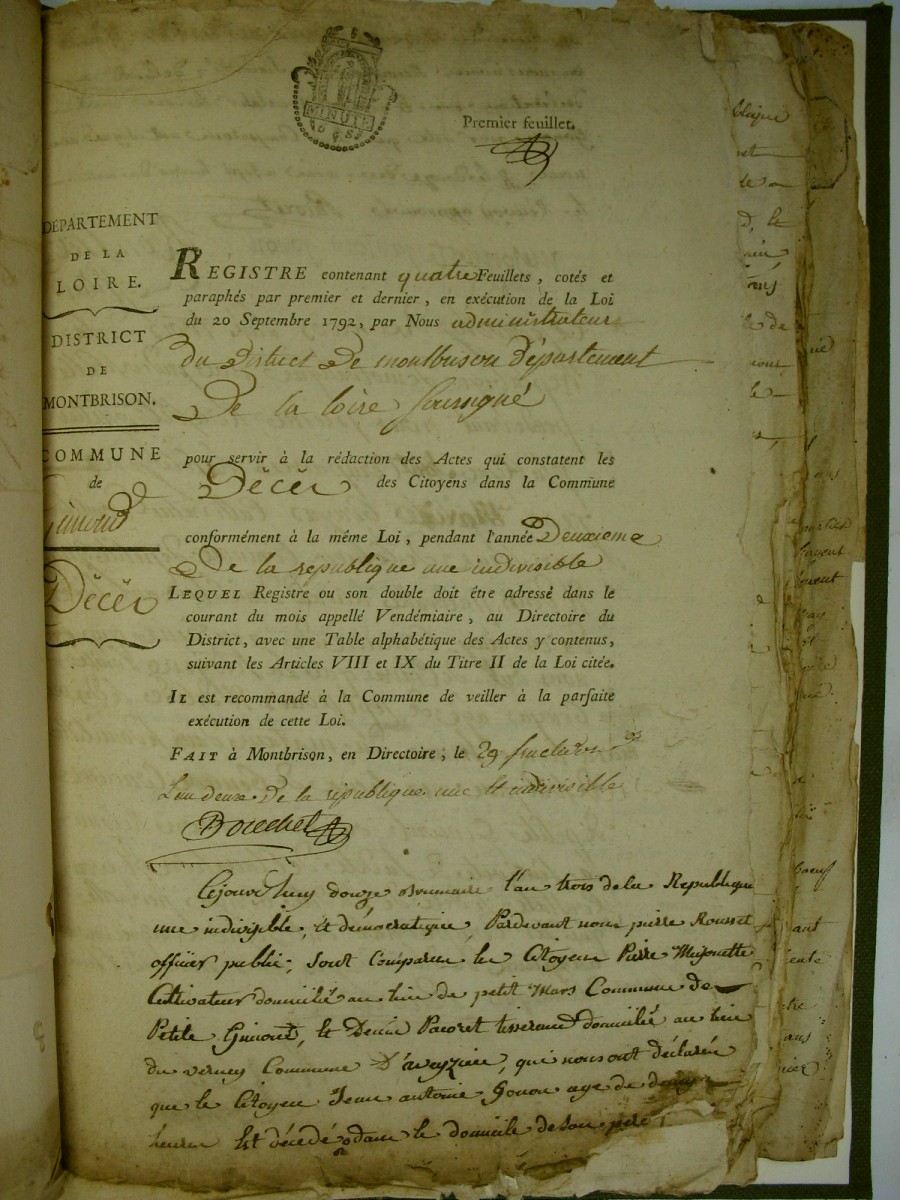 MINUTE
Premier feuillet.
DÉPARTEMENT
DE LA
LOIRE.
DISTRICT
DE
MONTBRISON.
COMMUNE
de
Gimond
Décès
REGISTRE contenant quatre Feuillets, cotés et
paraphés par premier et dernier, en exécution de la Loi
du 20 Septembre 1792, par Nous administrateur
du District De montbrison Département
De la loire soussigné
pour servir à la rédaction des Actes qui constatent les
Décès des Citoyens dans la Commune
conformément à la même Loi, pendant l'année Deuxieme
De la republique une indivisible
LEQUEL Registre ou son double doit être adressé dans le
courant du mois appellé Vendémiaire, au Directoire du
District, avec une Table alphabétique des Actes y contenus,
suivant les Articles VIII et IX du Titre II de la Loi citée.
IL est recommandé à la Commune de veiller à la parfaite
exécution de cette Loi.
FAIT à Montbrison, en Directoire, le 29 fructidor
L'an deux. De la république une et indivisible
Cejourd'huy douze Brumaire l'an trois de la Republique
une indivisible, et démocratique, Pardevant nous pierre Rousset
officier public, sont Comparu les Citoyens Pierre
Cultivateur domicilié au lieu de petit Mars Commune de
Petite Gimond, et Denis Pacoret tisserand domicilié au lieu
du verney Commune D'aveyzieu, qui nous ont déclarés
que le Citoyen Jean antoine Gonon age de douze
heures Est décédé dans le domicile de son père